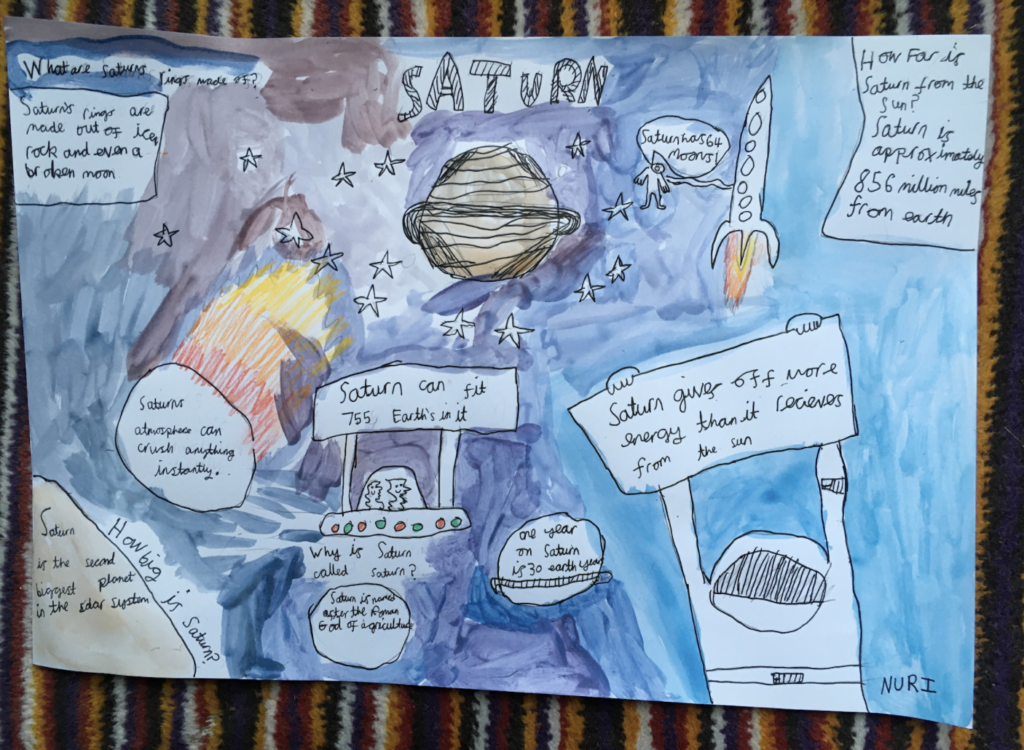 SATURN
What are Saturns rings made of?
Saturn's rings are
made out of ice,
rock and even a
broken moon
Saturn has 64
Moons!
How Far is
Saturn from the
Sun?
Saturn is
approximately
856 million miles
from earth
Saturns
atmosphere can
crush anything
instantly.
Saturn can fit
755 Earth's in it
Saturn gives off more
energy than it recieves
from the sun
Saturn
is the second
biggest planet
in the solar system
How big is Saturn?
Why is Saturn
called Saturn?
Saturn is named
after the Roman
God of agriculture
one year
on Saturn
is 30 earth years
NURI